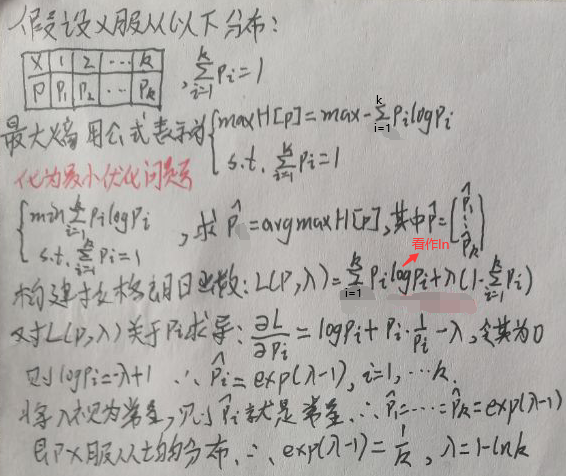 假设X服从以下分布:
X 1 2 ... k
P P₁ P₂ ... Pₖ , ∑ᵢ₌₁ᵏ Pᵢ=1
最大熵用公式表示为 { max H[p]=max-∑ᵢ₌₁ᵏ Pᵢ log Pᵢ
s.t. ∑ᵢ₌₁ᵏ Pᵢ=1
化为最小优化问题
{ min ∑ᵢ₌₁ᵏ Pᵢ log Pᵢ
s.t. ∑ᵢ₌₁ᵏ Pᵢ=1 , 求 P̂=argmax H[p], 其中P̂=[P̂₁ ⋮ P̂ₖ]
看作ln
构建拉格朗日函数: L(P,λ)=∑ᵢ₌₁ᵏ Pᵢ log Pᵢ+λ(1-∑ᵢ₌₁ᵏ Pᵢ)
对L(P,λ)关于Pᵢ求导: ∂L/∂Pᵢ=log Pᵢ+Pᵢ·1/Pᵢ-λ, 令其为0
则 log Pᵢ=λ+1 ∴ P̂ᵢ=exp(λ-1), i=1,...k.
将λ视为常量, 则P̂ᵢ就是常量. ∴ P̂₁=......=P̂ₖ=exp(λ-1)
即P X服从均匀分布. ∴ exp(λ-1)=1/k, λ=1-lnk